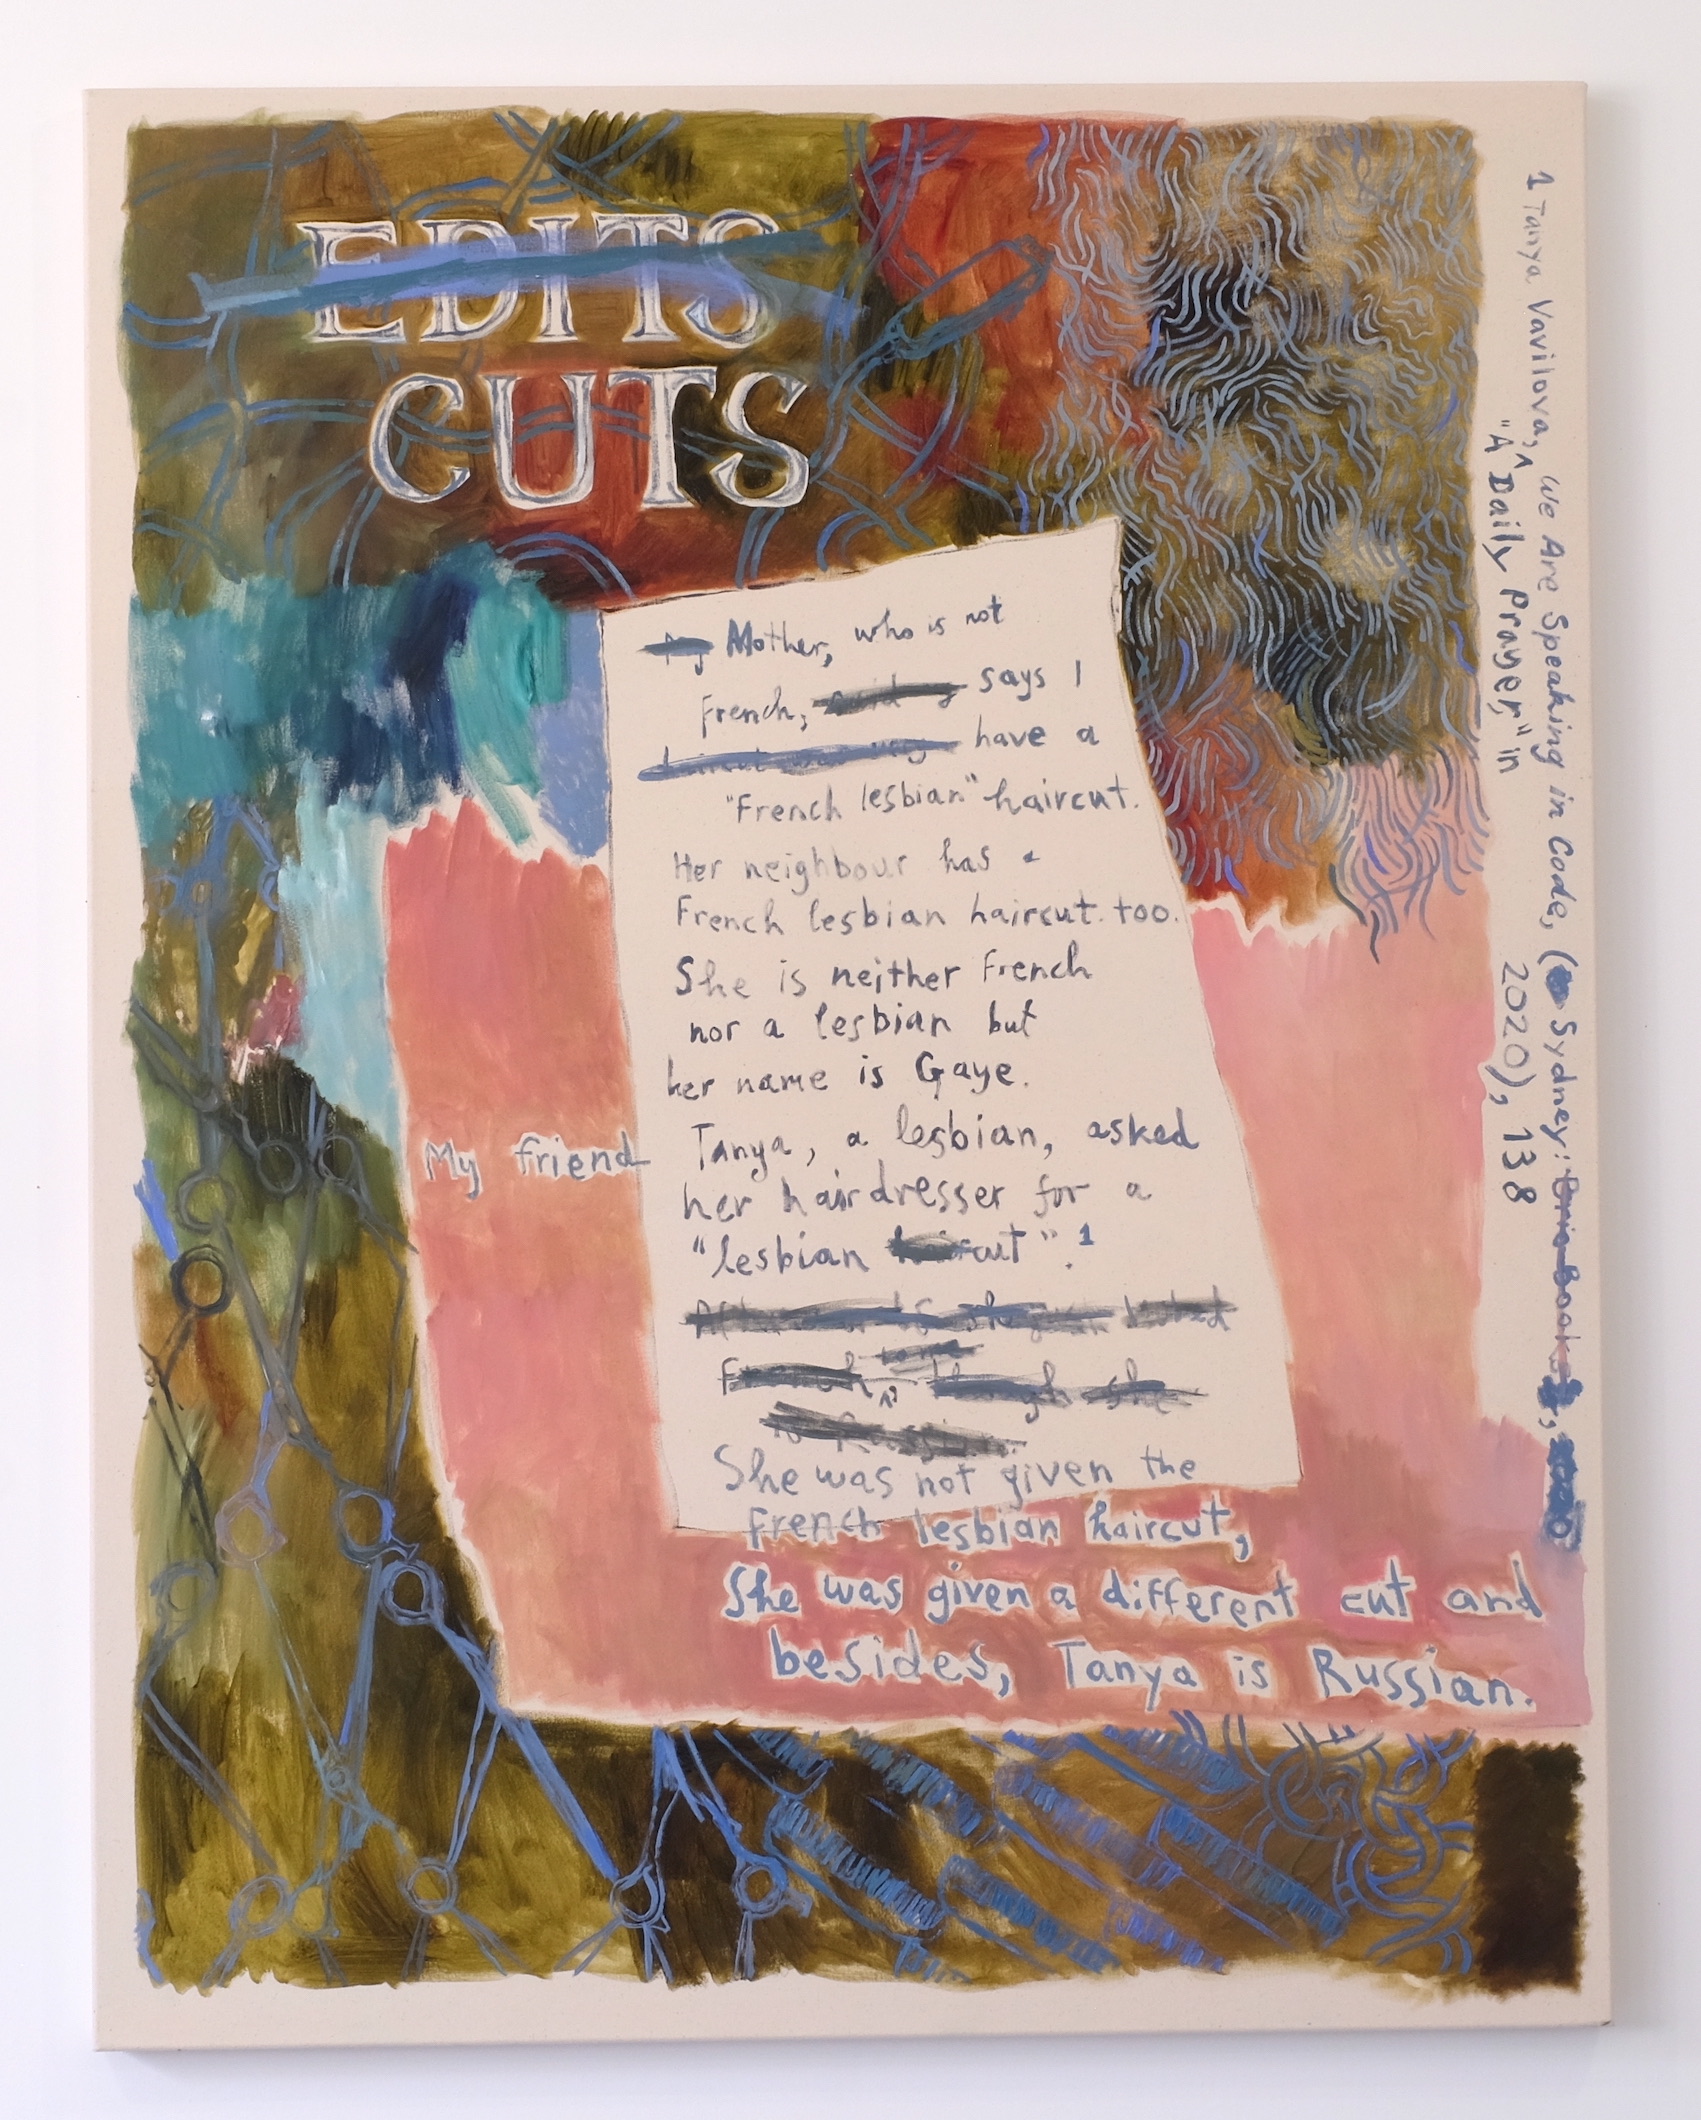 EDITS
CUTS
My Mother, who is not
French, said says I
have a
"French lesbian" haircut.
Her neighbour has a
French lesbian haircut too.
She is neither French
nor a lesbian but
her name is Gaye.
My friend Tanya, a lesbian, asked
her hairdresser for a
"lesbian haircut cut".1
French
She was not given the
French lesbian haircut,
She was given a different cut and
besides, Tanya is Russian.
1 Tanya Vavilova, ^ We Are Speaking in Code, ( Sydney: Brio Books, 
"A Daily Prayer," in 2020), 138